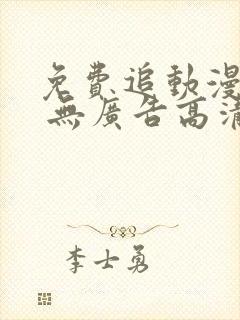 免費追動漫
無廣告高清
李士勇